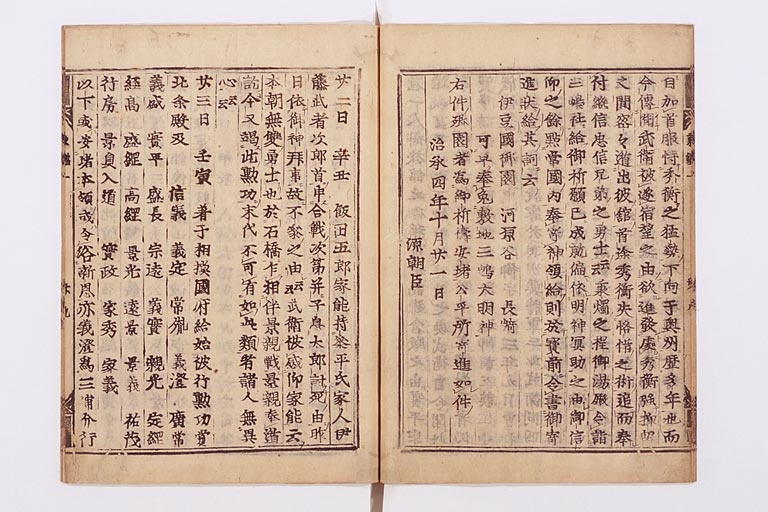 自加首服恃秀衡之猛勢下向于奥州歴多年也而
今傳聞武衛被遂宿望之由欲進發處秀衡強抑留
之間密々遁出彼舘首途秀衡失悋惜之術追而奉
付継信忠信兄弟之勇士云々秉燭之程御湯殿令詣
三嶋社給御祈願已成就偏依明神冥助之由御信
仰之餘點當國内奉寄神領給則於寳前令書御寄
進状給其詞云
伊豆國御園 河原谷 長﨑
可早奉免敷地三嶋大明神
右件御園者為御祈祷安堵公平所寄進如件
治承四年十月廿一日
源朝臣
廿二日 辛丑 飯田五郎家能持参平氏家人伊
藤武者次郎首申合戦次第并子息太郎討死由昨
日依御神拜事故不参之由云々武衛被感仰家能云
本朝無雙勇士也於石橋乍相伴景親戦景親奉遁
訖今又竭此勲功末代不可有如此類者諸人無異
心云々
廿三日 壬寅 着于相摸國府給始被行勲功賞
北条殿及 信義 義定 常胤 義澄 廣常
義盛 實平 盛長 宗遠 義實 親光 定綱
經高 盛綱 高綱 景光 遠景 景義 祐茂
行房 景員入道 實政 家秀 家義
以下或安堵本領或令浴新恩亦義澄為三浦介行